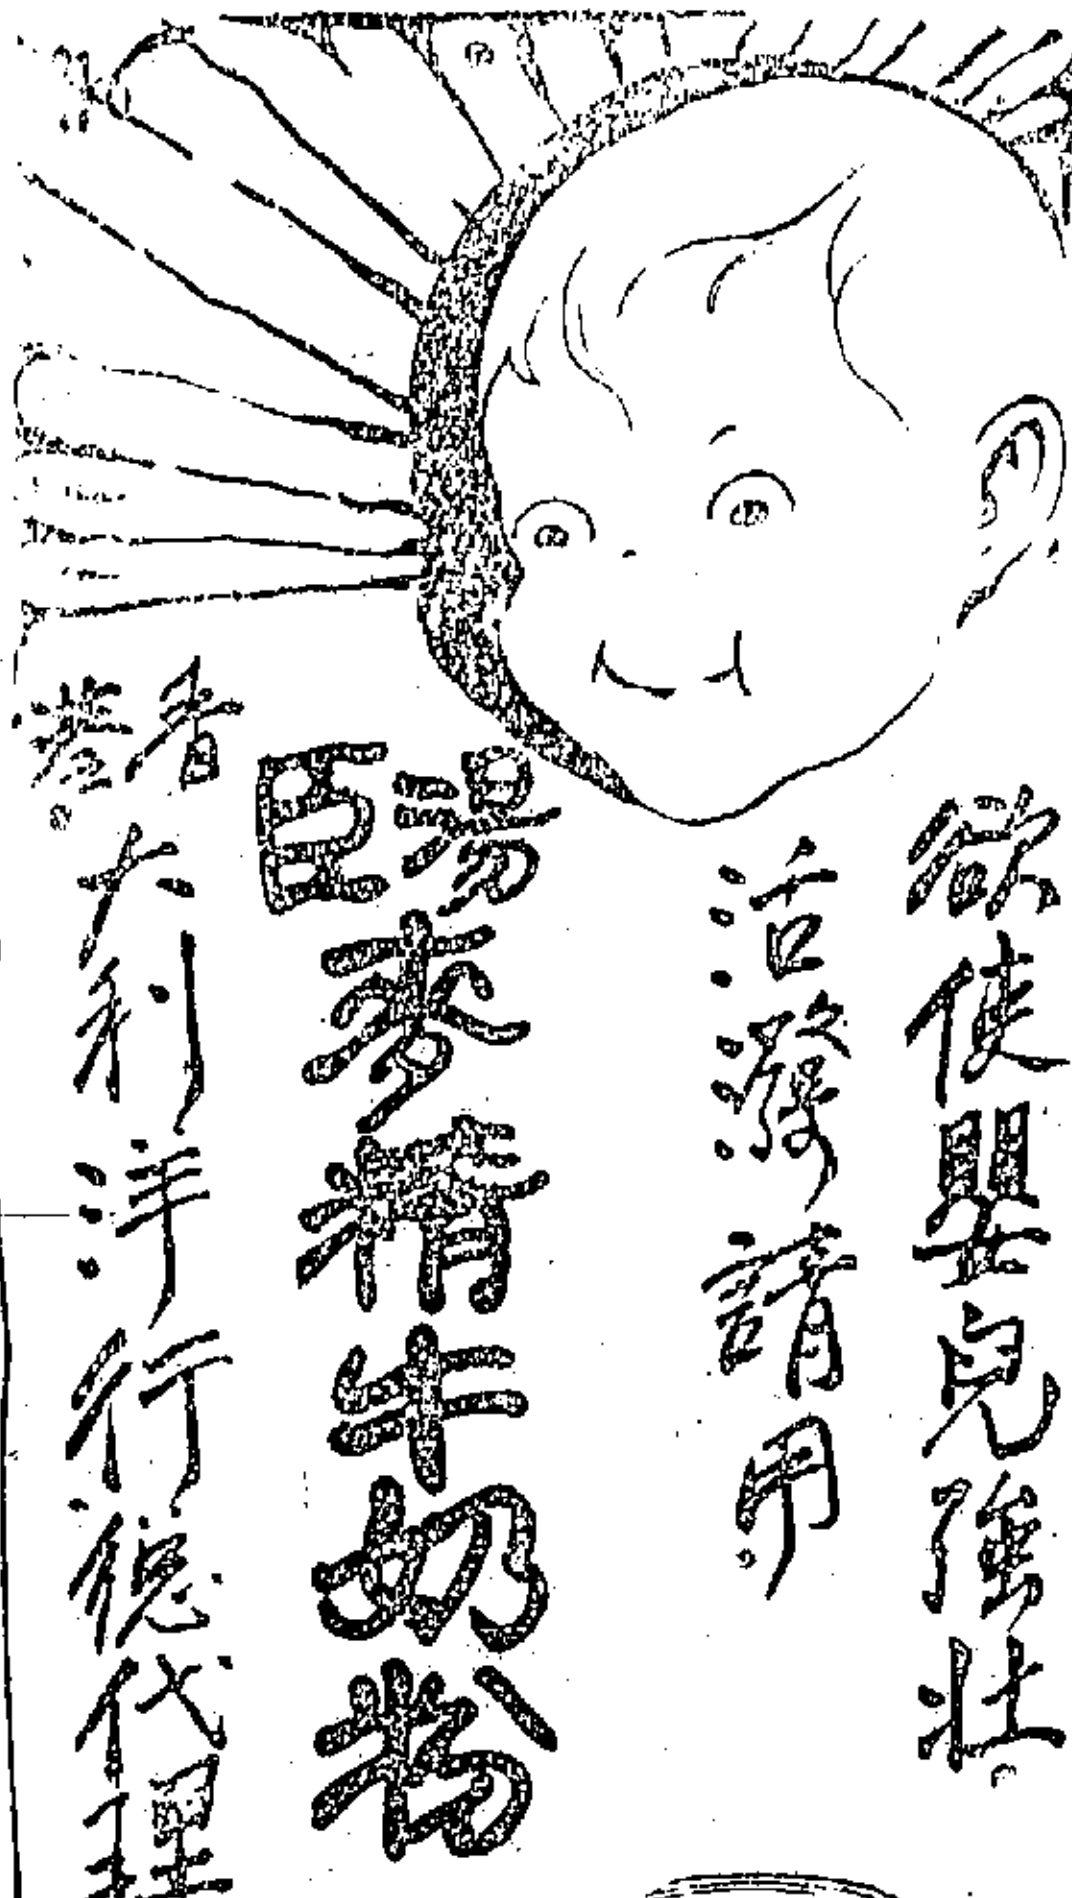 欲使嬰兒強壯。
活潑請用
湯臣麥精牛奶粉
香港。大利洋行總代理